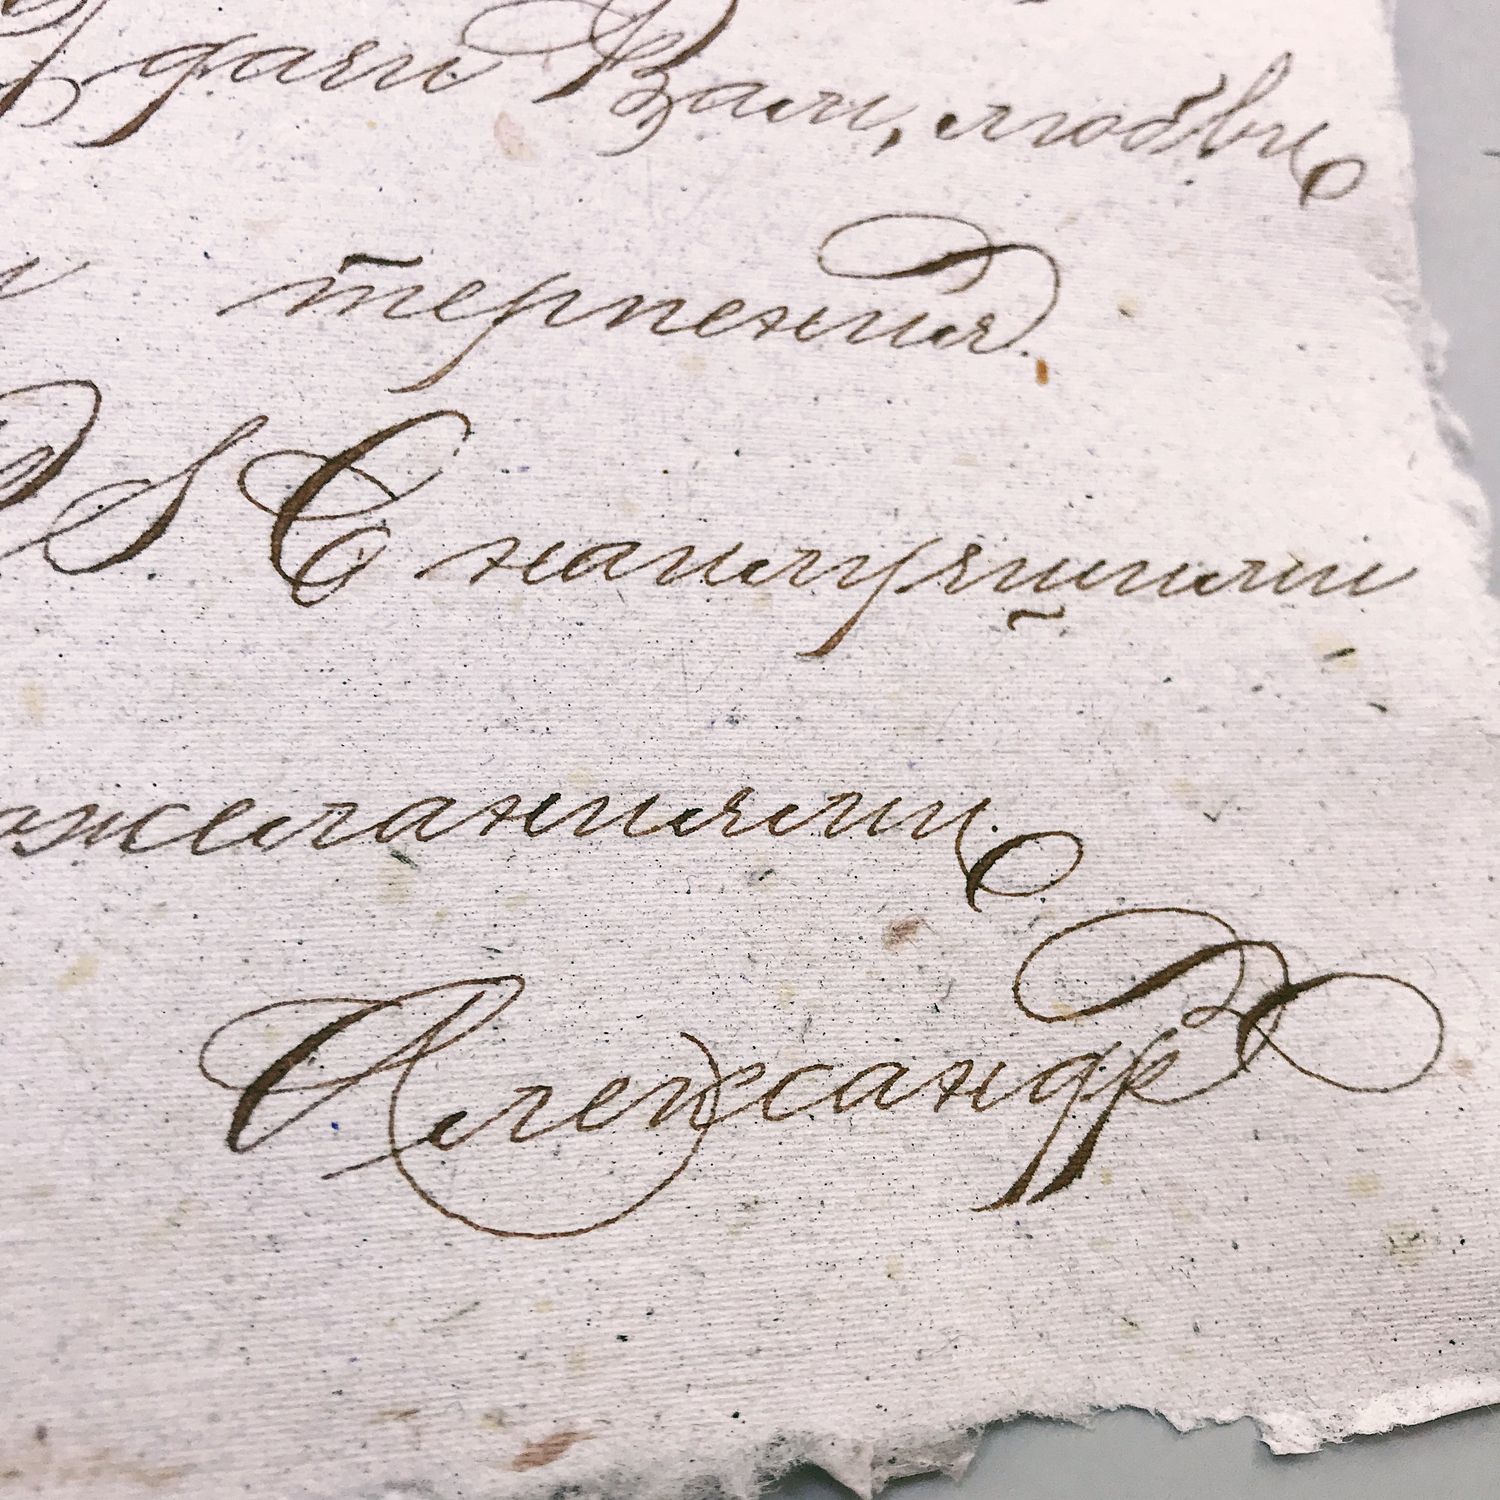 Удачи Вам, любви
и терпения.
PS С наилучшими
пожеланиями
Александр